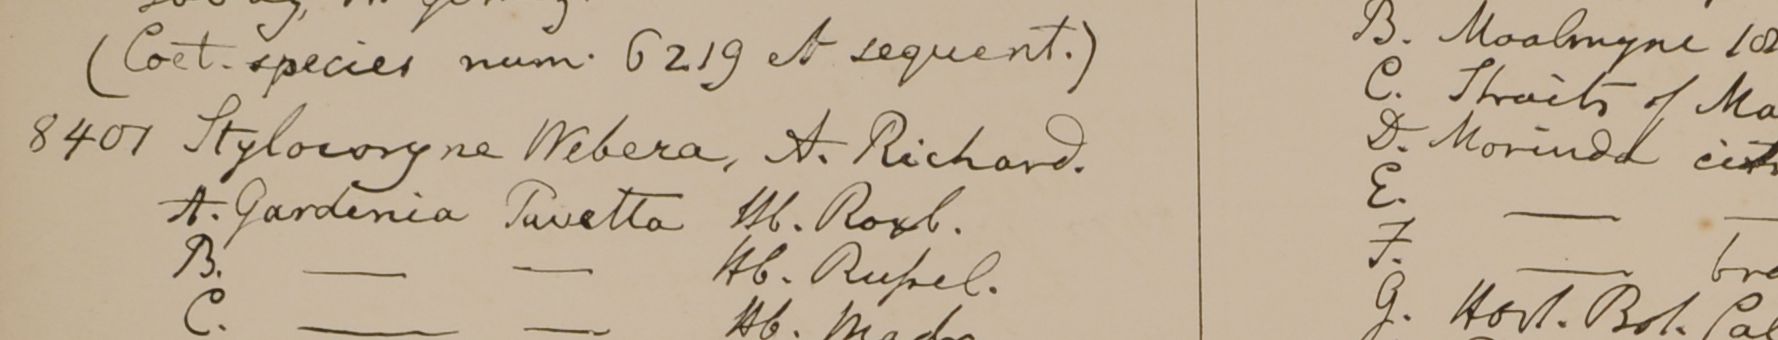 (Coet. species num. 6219 et sequent.)
8401 Stylocoryne Webera, A. Richard.
A. Gardenia Pavetta Hb. Roxb.
B. — — Hb. Russel.
C. — — Hb. Madr
B. Moalmyne 182
C. Straits of Ma
D. Morinda citr
E. — —
F. — bra
G. Hort. Bot. Cal